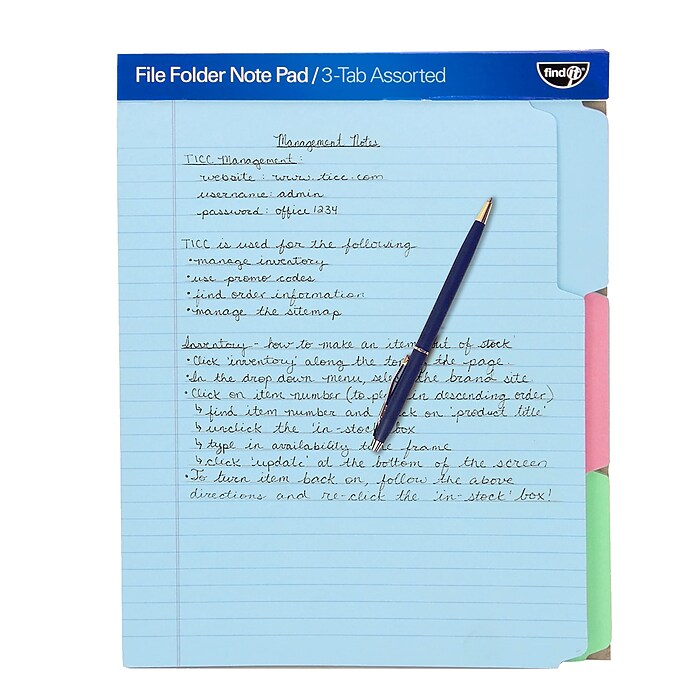 File Folder Note Pad / 3-Tab Assorted
find it
Management Notes
TICC Management:
website: www.ticc.com
username: admin
password: office1234
TICC is used for the following
• manage inventory
• use promo codes
• find order information
• manage the sitemap
Inventory - how to make an item out of stock
• Click 'inventory' along the top the page.
• In the drop down menu, the brand site
• Click on item number (to in descending order)
↳ find item number and on 'product title'
↳ unclick the 'in-stock' box
↳ type in availability frame
↳ click 'update' at the bottom of the screen
• To turn item back on, follow the above
directions and re-click the 'in-stock' box!